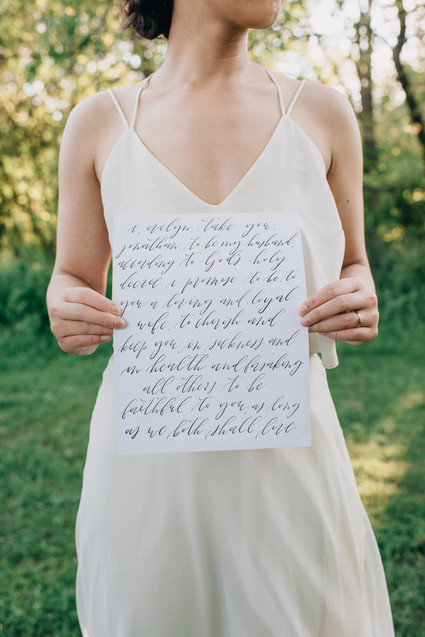 i, evelyn, take you,
jonathan, to be my husband,
according to God's holy
decree. i promise to be to
you a loving and loyal
wife, to cherish and
keep you in sickness and
in health and forsaking
all others to be
faithful to you as long
as we both shall live.